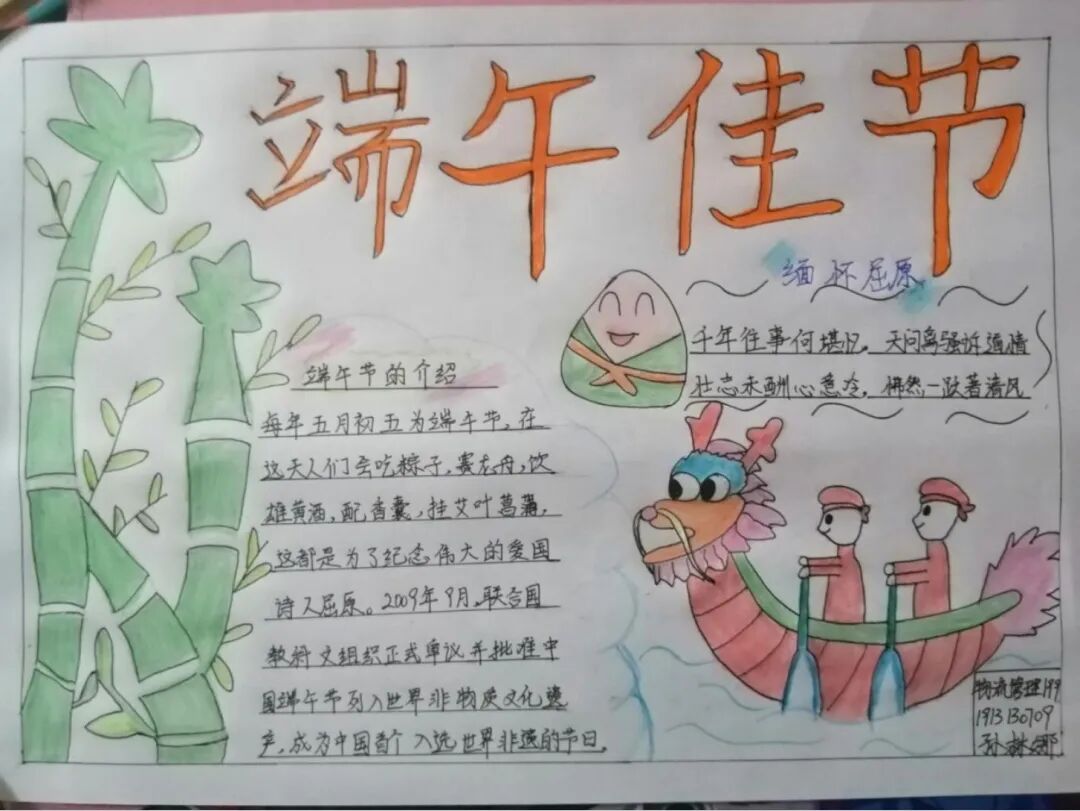 端午佳节
缅怀屈原
千年往事何堪忆，天问离骚诉通情
壮志未酬心意冷，怫然一跃著清风
端午节的介绍
每年五月初五为端午节，在
这天人们会吃粽子，赛龙舟，饮
雄黄酒，配香囊，挂艾叶菖蒲，
这都是为了纪念伟大的爱国
诗人屈原。2009年9月，联合国
教科文组织正式审议并批准中
国端午节列入世界非物质文化遗
产，成为中国首个入选世界非遗的节日。
物流管理199
1913130709
孙